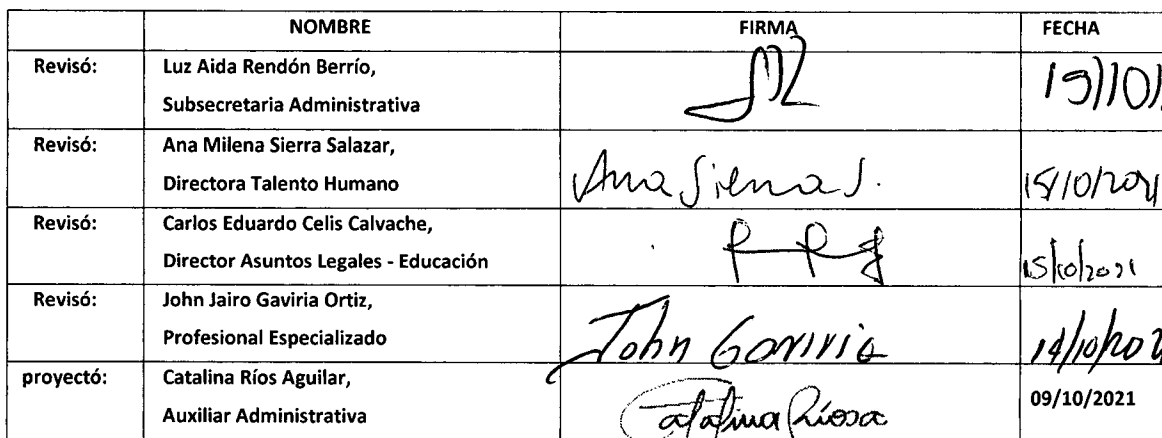 NOMBRE FIRMA FECHA
Revisó: Luz Aida Rendón Berrío,
Subsecretaria Administrativa
Revisó: Ana Milena Sierra Salazar,
Directora Talento Humano Ana Sierra S. 15/10/2021
Revisó: Carlos Eduardo Celis Calvache,
Director Asuntos Legales - Educación 15/10/2021
Revisó: John Jairo Gaviria Ortiz,
Profesional Especializado John Gaviria 14/10/202
proyectó: Catalina Ríos Aguilar,
Auxiliar Administrativa Catalina Ríosa 09/10/2021